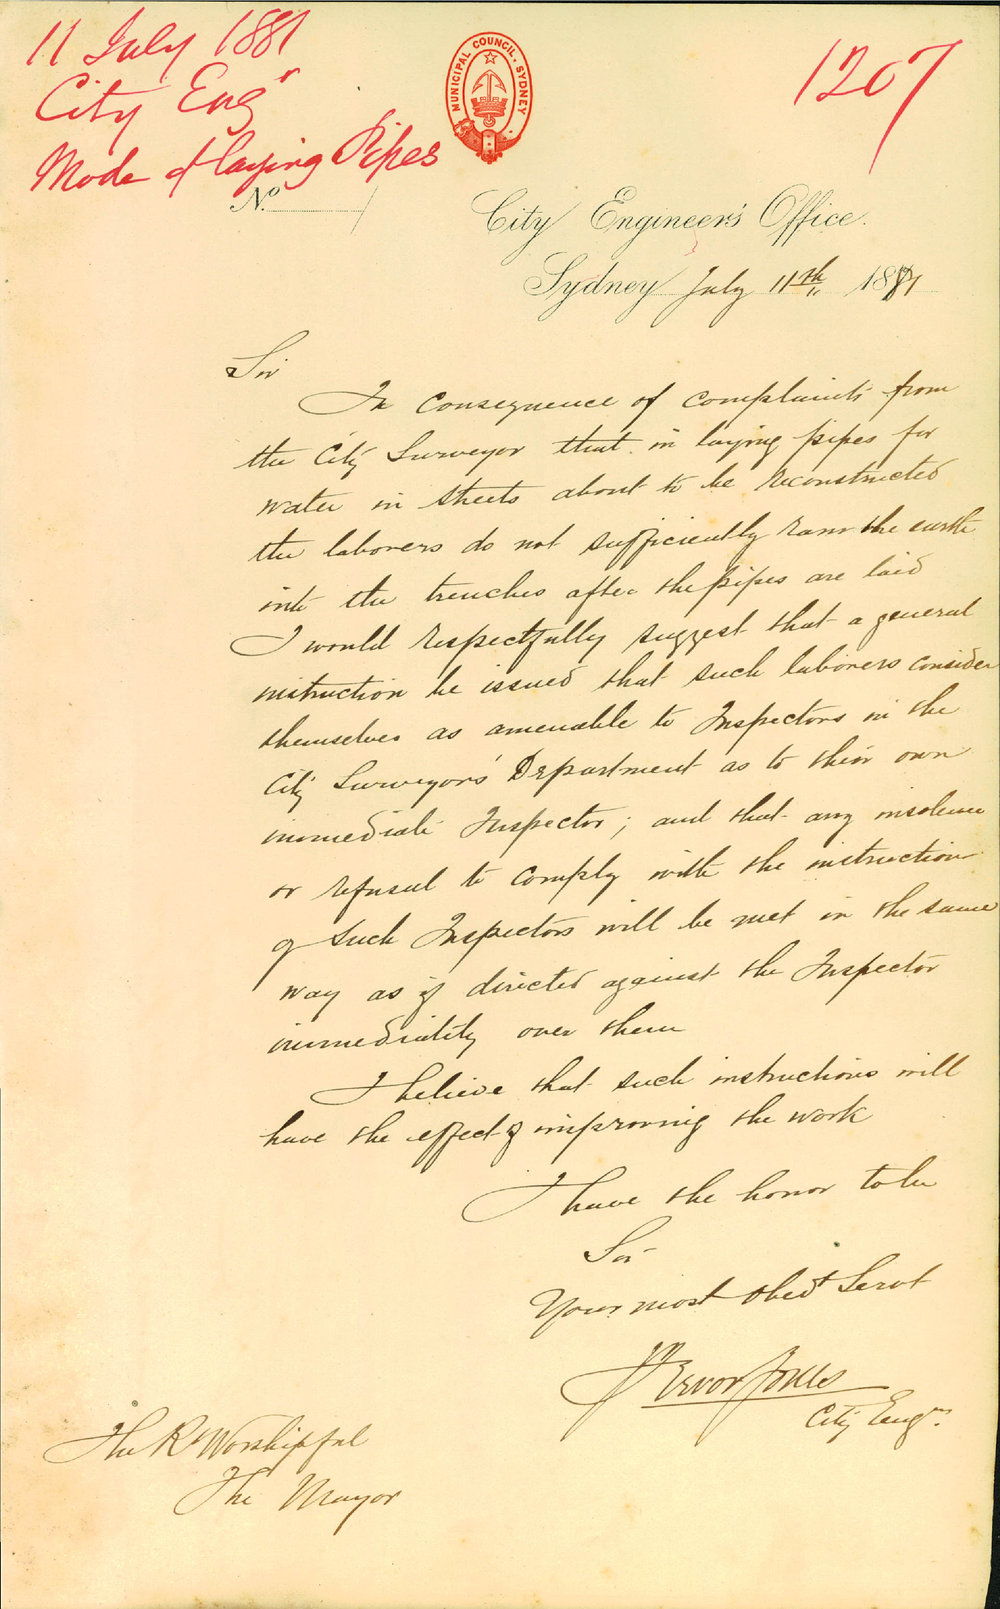 11 July 1881
City Engr
Mode of laying Pipes
1207
MUNICIPAL COUNCIL. SYDNEY
No.
City Engineer's Office.
Sydney July 11th 1881
Sir
In consequence of complaints from
the City Surveyor that in laying pipes for
water in streets about to be reconstructed
the laborers do not sufficiently ram the earth
into the trenches after the pipes are laid
I would respectfully suggest that a general
instruction be issued that such laborers consider
themselves as amenable to Inspectors in the
City Surveyors' Department as to their own
immediate Inspector; and that any insolence
or refusal to comply with the instruction
of such Inspectors will be met in the same
way as if directed against the Inspector
immediately over them
I believe that such instructions will
have the effect of improving the work
I have the honor to be
Sir
Your most obedt Servt
J Trevor Jones
City Engr.
The Rt Worshipful
The Mayor